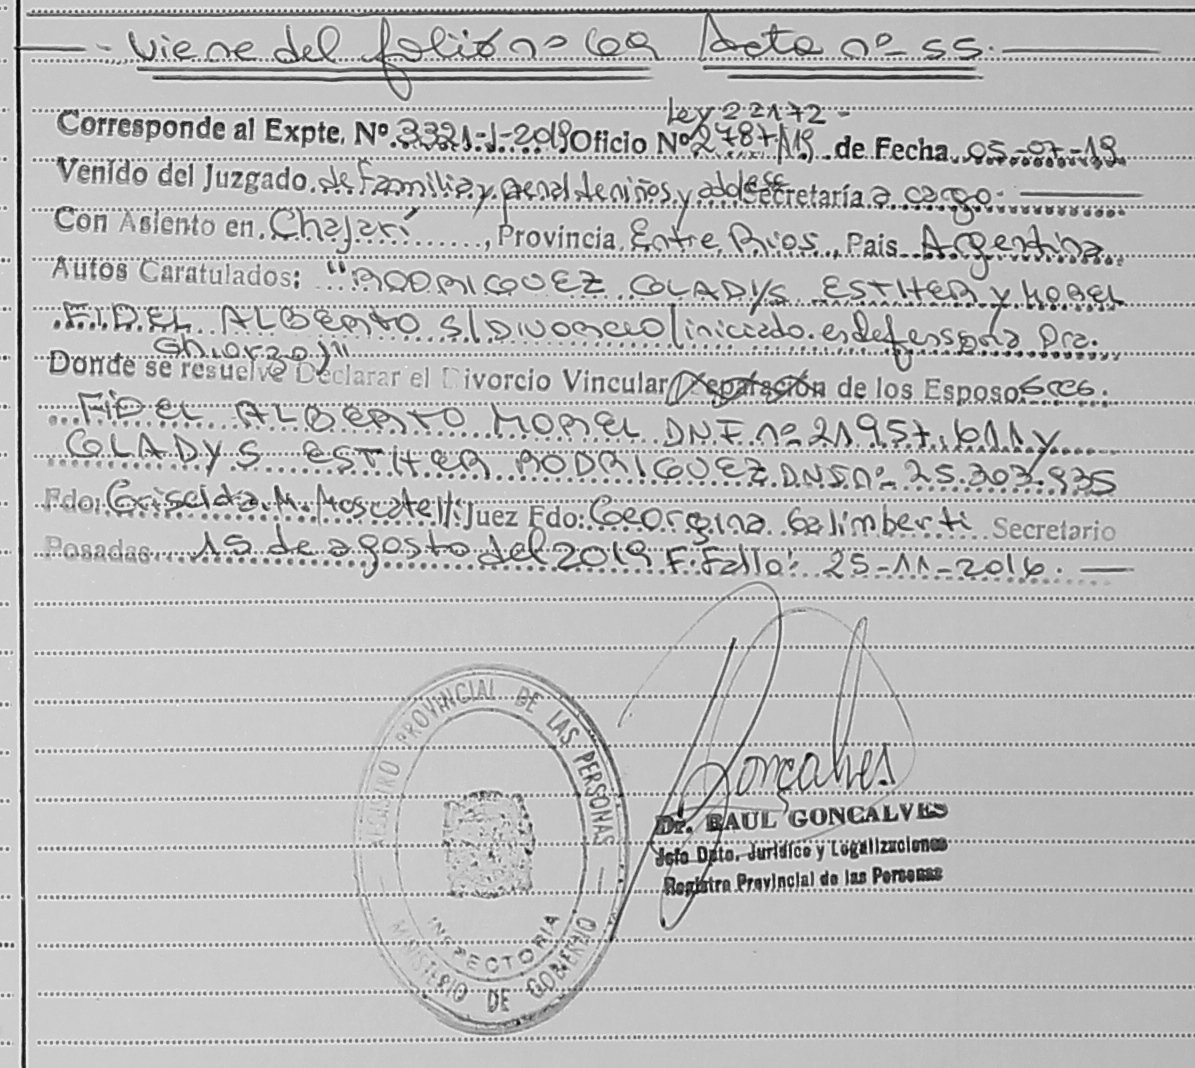 Viene del folio nº 69 Acta nº 55.
Ley 22172 -
Corresponde al Expte. Nº 3321-J-2019 Oficio Nº 278+/19 de Fecha 05-07-19
Venido del Juzgado de Familia y penal de niños y adolesc Secretaría a cargo.
Con Asiento en Chajarí, Provincia Entre Rios, Pais Argentina.
Autos Caratulados: "RODRIGUEZ GLADYS ESTHER y MOREL
FIDEL ALBERTO S/ DIVORCIO (iniciado en defensoria Dra.
Ghiorzo)"
Donde se resuelve Declarar el Divorcio Vincular/Separación de los Esposos Sres.
FIDEL ALBERTO MOREL DNI nº 21957.611 y
GLADYS ESTHER RODRIGUEZ DNI nº 25.303.935
Fdo: Griselda M. Moscatelli Juez Fdo: Georgina Galimberti Secretario
Posadas 15 de agosto del 2019 F. Fallo: 25-11-2016.
REGISTRO PROVINCIAL DE LAS PERSONAS
INSPECTORIA
MINISTERIO DE GOBIERNO
Gonçalves
Dr. RAUL GONCALVES
Jefe Dpto. Jurídico y Legalizaciones
Registro Provincial de las Personas